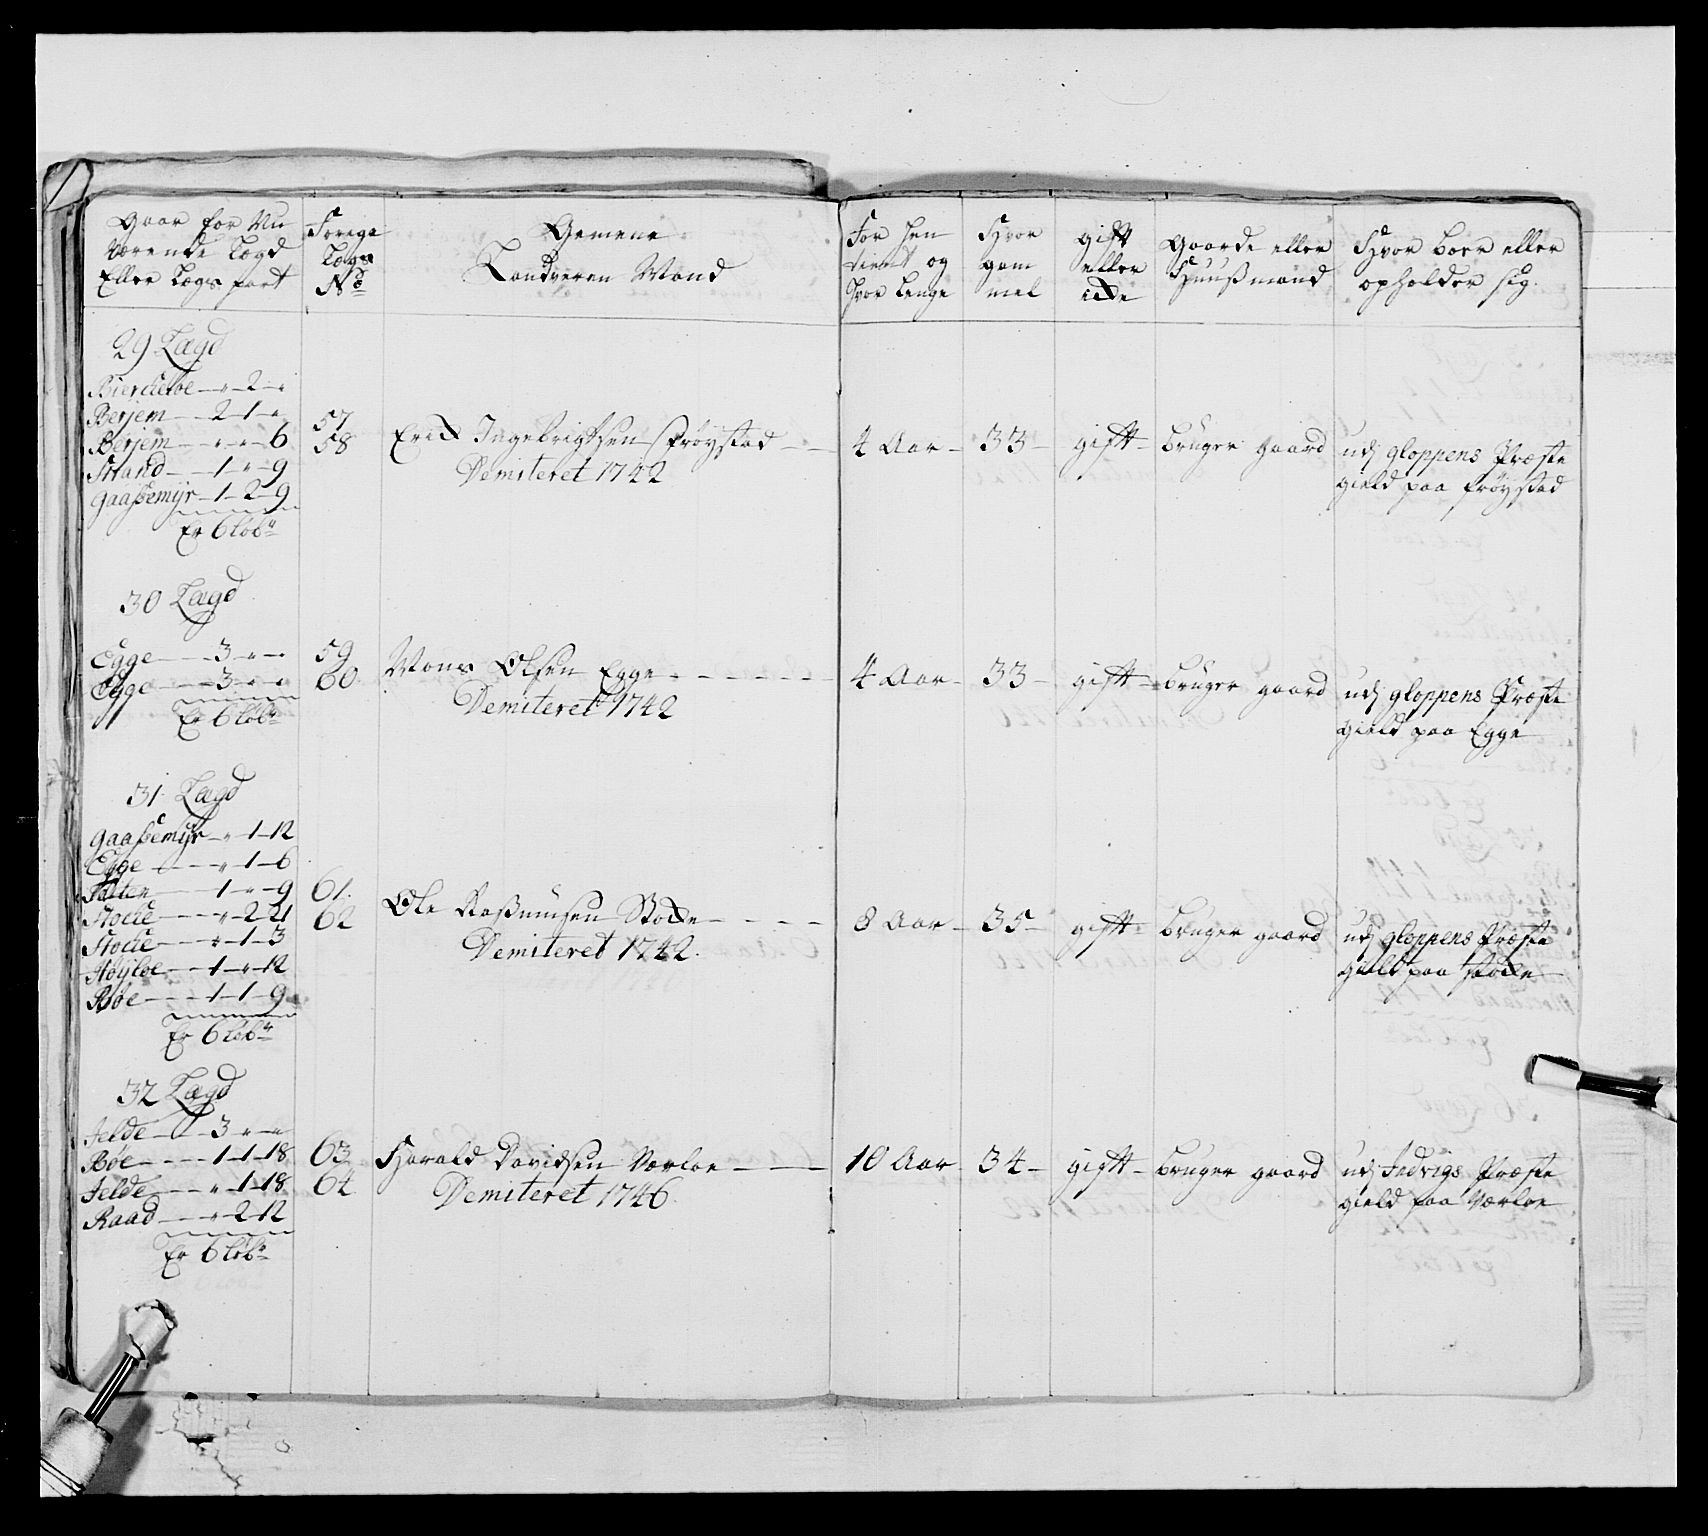 Gaar for Nu
værende Lægd
Eller Lægs part
Forrige
Lægs
No
Gemene
Landværn Mand
For hen
tient og
hvor lenge
Hvor
gam
mel
gift
eller
icke
Gaarde eller
Huusmand
Hvor boer eller
opholder sig.
29 Lægd
Bierckeloe - " - 2 - "
Berjem - 2 - 1 - "
Berjem - " - " - 6
Strand - 1 - " - 9
Gaaßemÿr - 1 - 2 - 9
Er 6 løb
57
58
Erick Ingebrigtsen Frøystad
Demiteret 1742
4 Aar
33
gift
bruger gaard
udj gloppens Præste
gield paa frøystad
30 Lægd
Egge - 3 - " - "
Egge - 3 - " - "
Er 6 løb
59
60
Mons Olsen Egge
Demiteret 1742
4 Aar
33
gift
bruger gaard
udj gloppens Præste
gield paa Egge
31 Lægd
Gaaßemÿr - " - 1 - 12
Egge - " - 1 - 6
- 1 - " - 9
Stocke - " - 2 - 21
Stocke - " - 1 - 3
Høÿloe - 1 - " - 12
Bøe - 1 - 1 - 9
Er 6 løb
61.
62
Ole Rasmusen Stocke
Demiteret 1742.
8 Aar
35
gift
bruger gaard
udj gloppens Præste
gield paa stocke
32 Lægd
Jelde - 3 - " - "
Bøe - 1 - 1 - 18
Jelde - " - 1 - 18
Raad - " - 2 - 12
Er 6 løb
63
64
Harald Davidsen Værloe
Demiteret 1746.
10 Aar
34
gift
bruger gaard
udj Indvigs Præste
gield paa Værloe